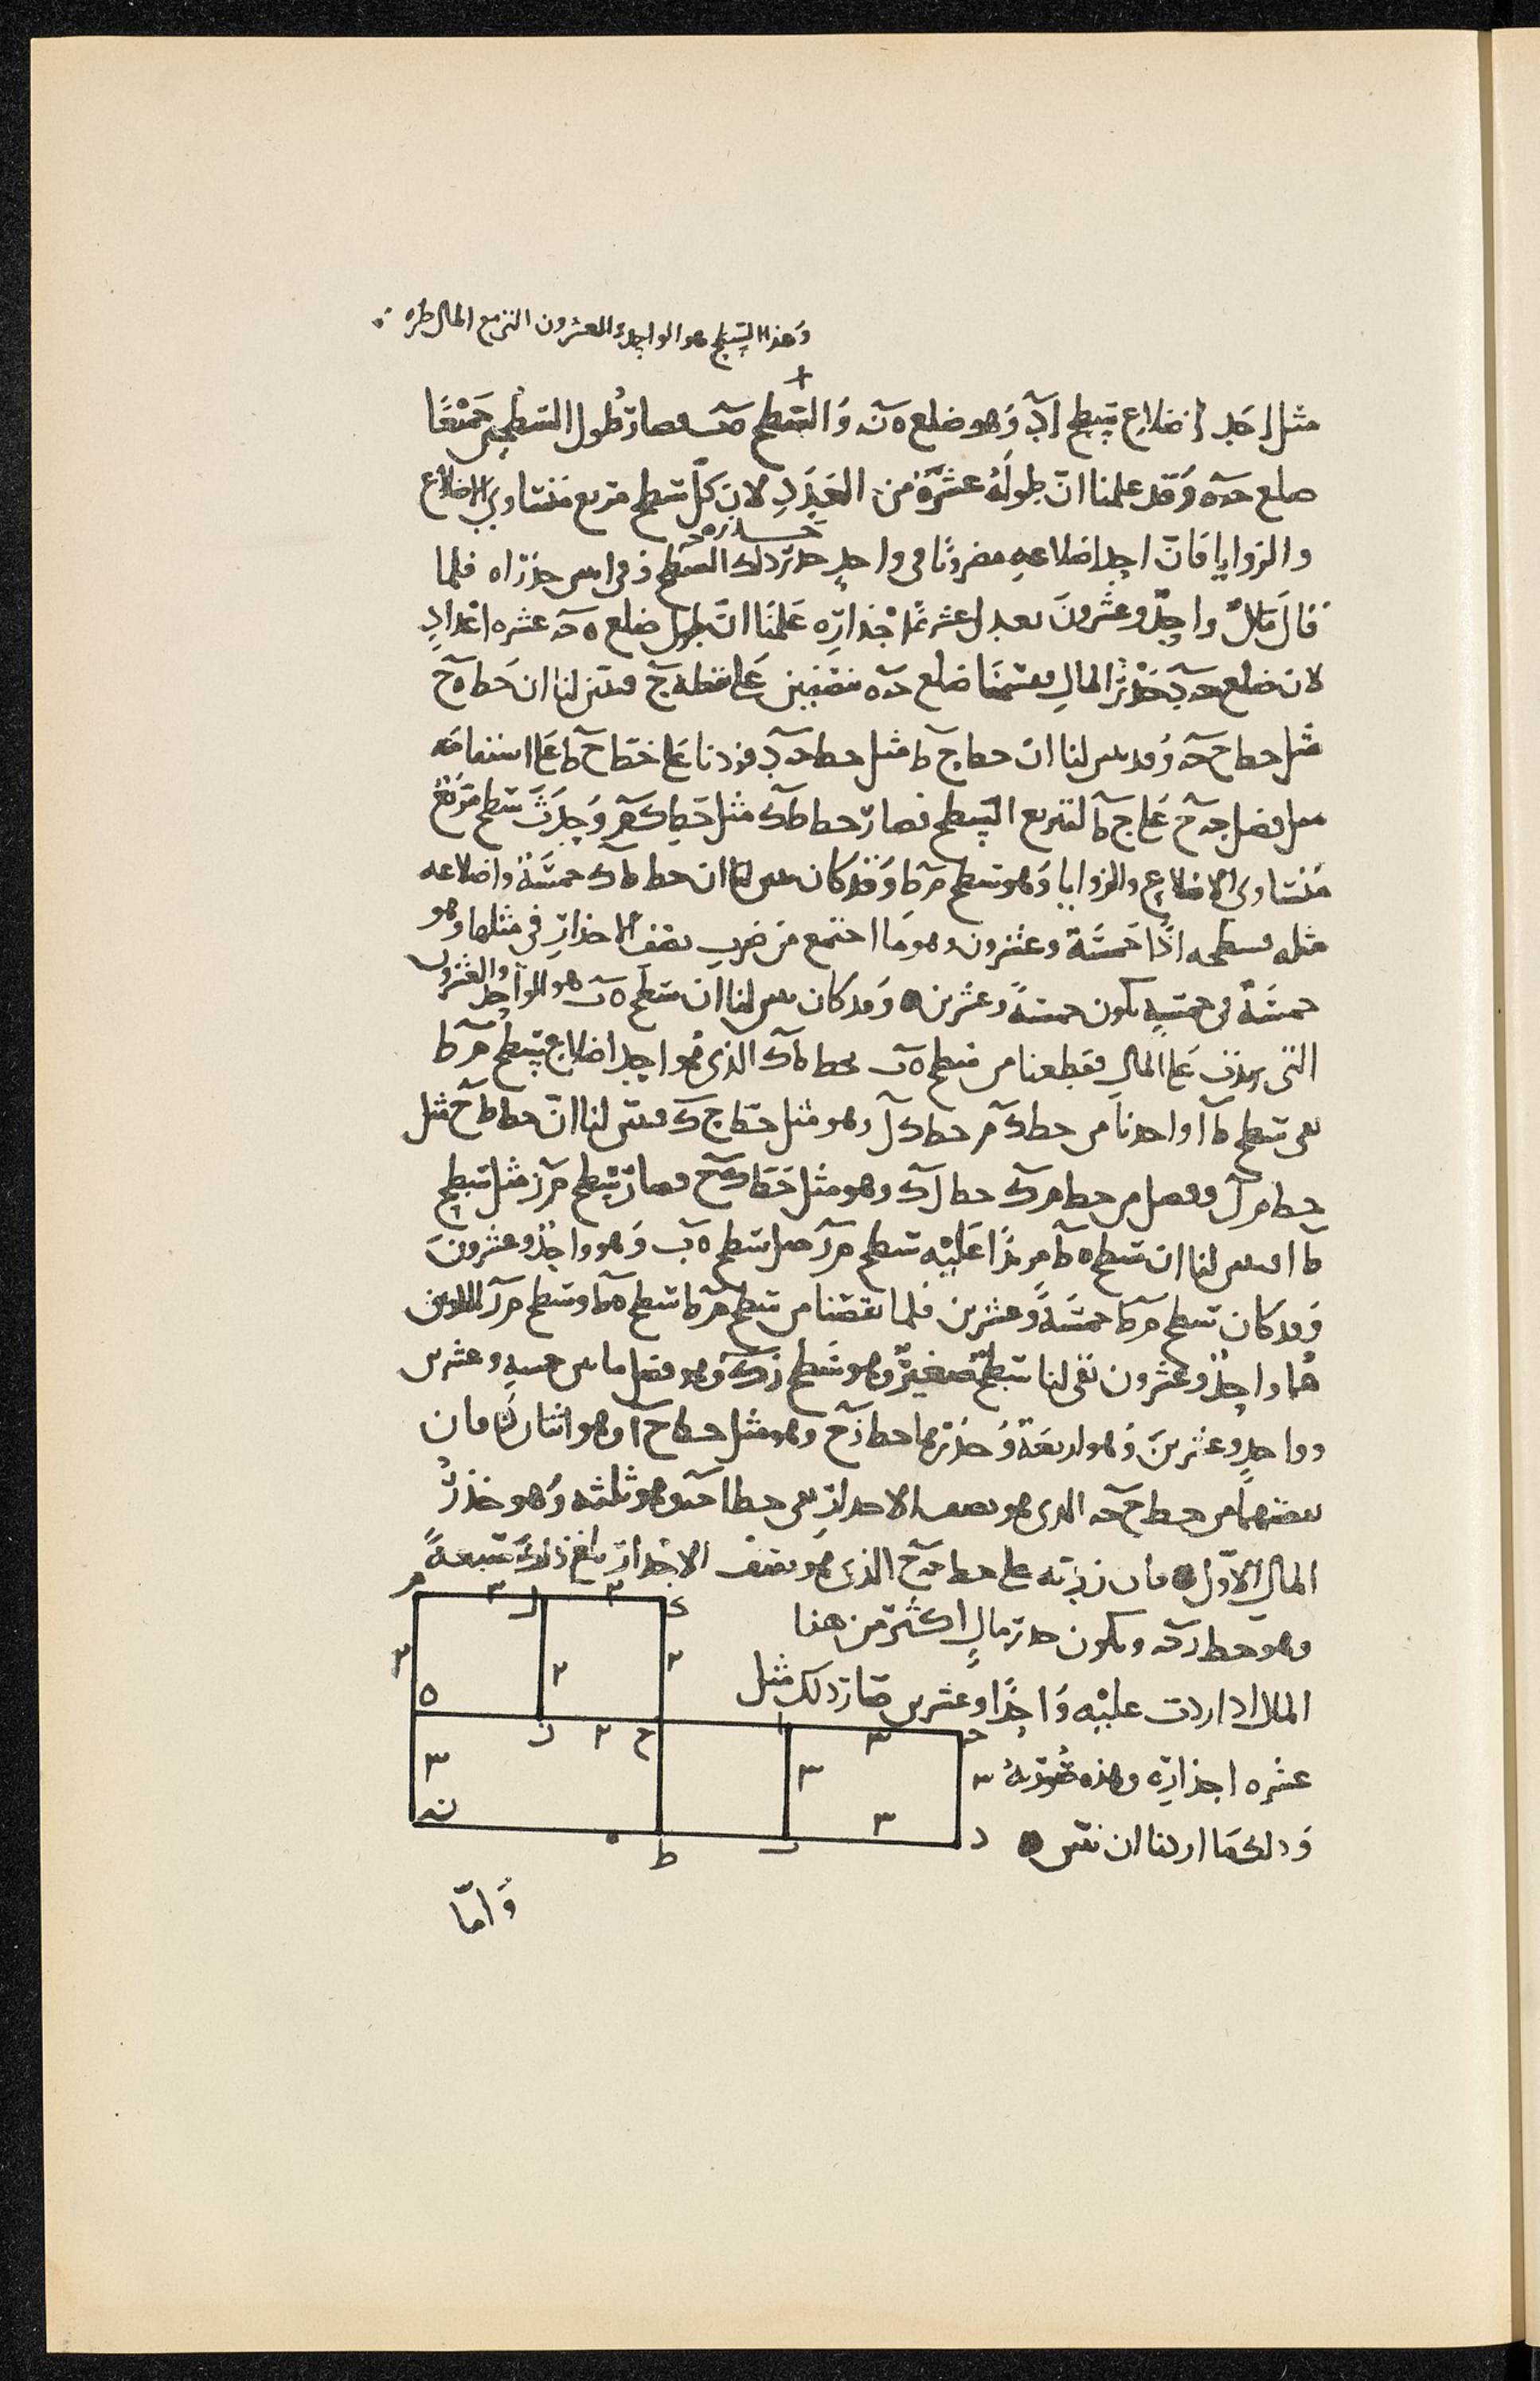 وهذا السطح هو الواحد والعشرون التي مع المال طره
مثل احد اضلاع سطح اد وهو ضلع ه ن والسطح ه ب فصار طول السطحين جميعًا
ضلع ح ه وقد علمنا ان طوله عشرة من العدد لان كل سطح مربع متساوي الاضلاع
والزوايا فان احد اضلاعه مضروبًا في واحد جذر ذلك السطح وفي اثنين جذراه فلما
قال مال واحد وعشرون يعدل عشرة اجذاره علمنا ان طول ضلع ه ح عشره اعداد
لان ضلع ح د جذر المال فقسمنا ضلع ح ه بنصفين على نقطة ح فتبين لنا ان خط ه ح
مثل خط ح ح وقد تبين لنا ان خط ح ط مثل خط ح د فزدنا على خط ح ط على استقامته
مثل فضل ح ح على ح ط لتربيع السطح فصار خط ط ك مثل خط ك م وحدث سطح مربع
متساوي الاضلاع والزوايا وهو سطح م ط وقد كان تبين لنا ان خط ط ك خمسة واضلاعه
مثله فسطحه اذًا خمسة وعشرون وهو ما اجتمع من ضرب نصف الاجذار في مثلها وهو
خمسة في خمسة يكون خمسةً وعشرين وقد كان تبين لنا ان سطح ه ب هو الواحد والعشرون
التي زيدت على المال فقطعنا من سطح ه ب بخط ط ك الذي هو احد اضلاع سطح م ط
بقي سطح ط ا واخذنا من خط ك م خط ك ل وهو مثل خط ح ك فتبين لنا ان خط ط ح مثل
خط م ل وفضل من خط م ك خط ل ك وهو مثل خط ك ح فصار سطح م ر مثل سطح
ط ا فتبين لنا ان سطح ه ط مزيدًا عليه سطح م ر مثل سطح ه ب وهو واحد وعشرون
وقد كان سطح م ط خمسةً وعشرين فلما نقصنا من سطح م ط سطح ه ط وسطح م ر اللذين
هما واحد وعشرون بقي لنا سطح صغير وهو سطح ر ك وهو فضل ما بين خمسة وعشرين
وواحد وعشرين وهو اربعة وجذرها خط ر ح وهو مثل خط ح ا وهو اثنان فان
نقصتهما من خط ح ح الذي هو نصف الاجذار بقي خط ا ح وهو ثلثه وهو جذر
المال الاول فان زدته على خط ح ح الذي هو نصف الاجذار بلغ ذلك سبعةً
وهو خط ر ح ويكون جذر مال اكثر من هذا
المال اذا زدت عليه واحدًا وعشرين صار ذلك مثل
عشره اجذاره وهذه صورته
وذلك ما اردنا ان نبين
م ٣ ل ٢ ك
٢ ٢ ٢
ه ر ٢ ح ا ٣ ح
٣ ٣ ٣
ن ه ط ب ٣ د
واما